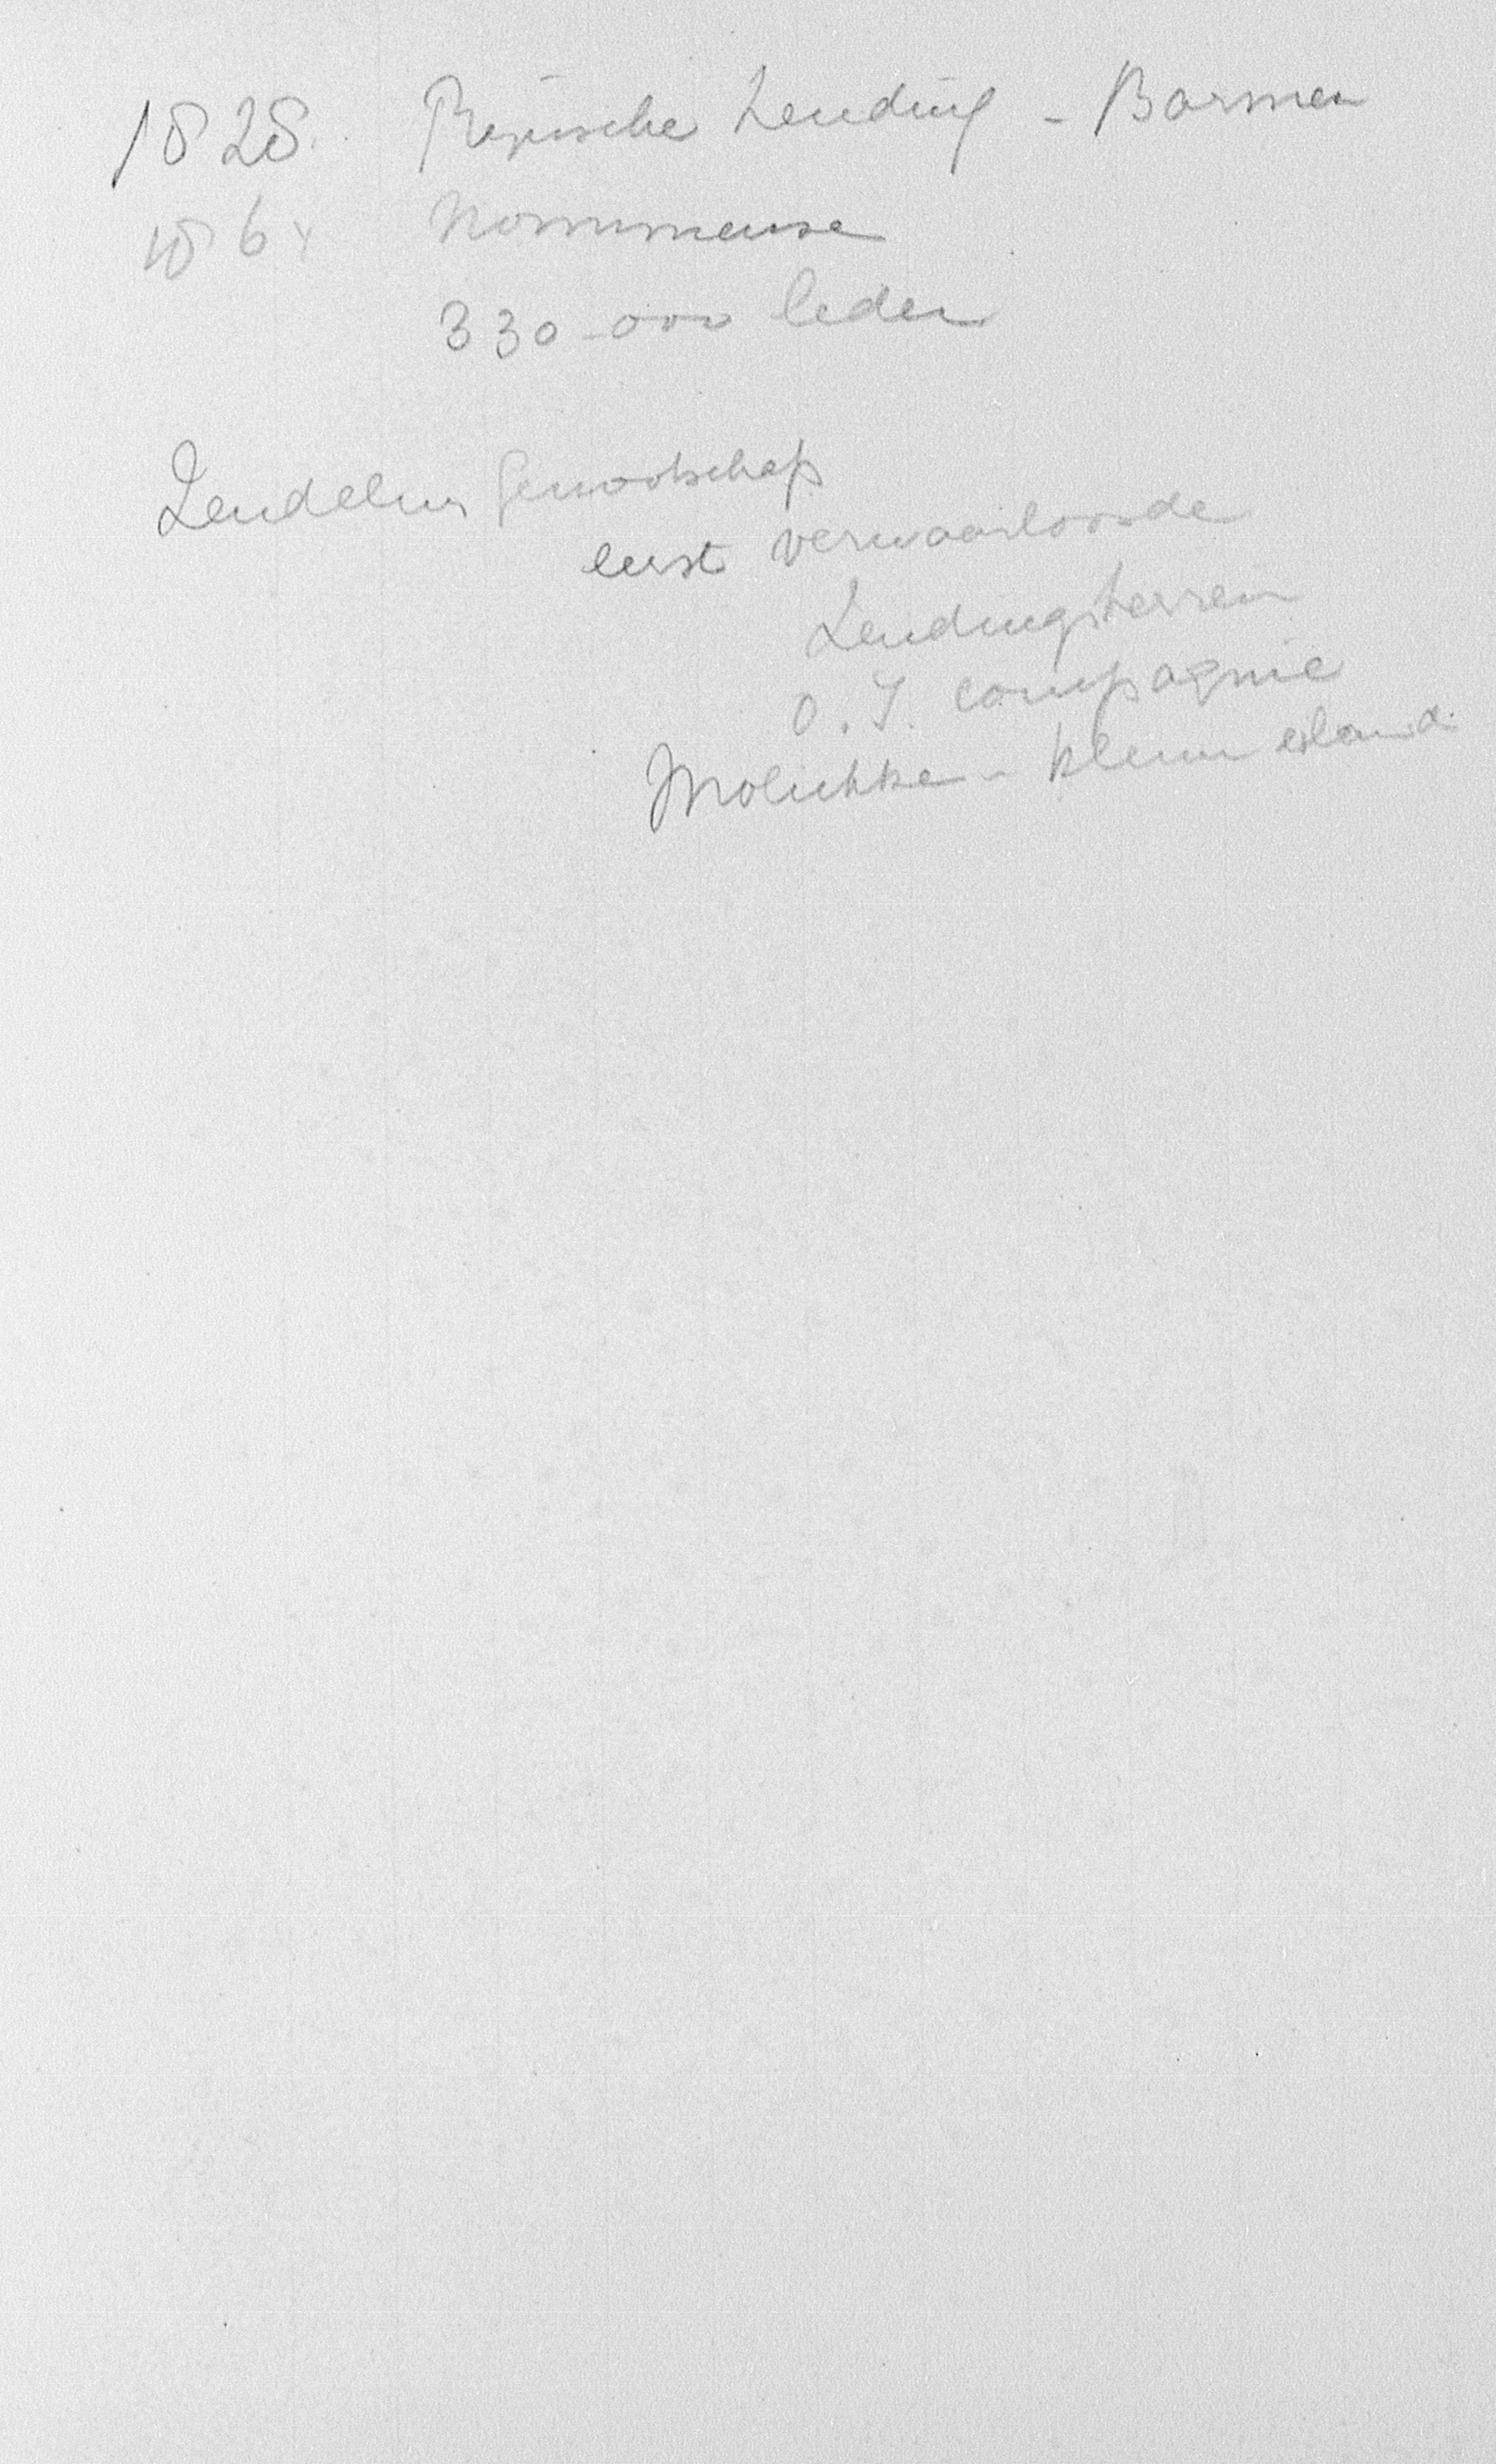 1828. Rijnsche Zending - Barmen
186 Nommensen
330-000 leden
Zendeling Genootschap
eerst verwaarloosde
Zendingsterrein
O. I. compagnie
Molukken - kleine eiland